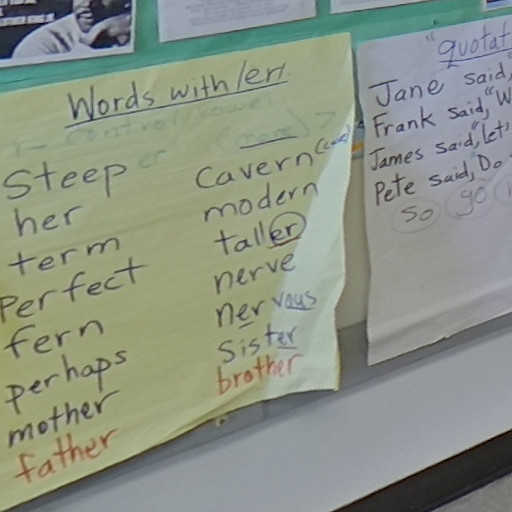 Words with /er/
r-control/vowel
Steeper
her
term
Perfect
fern
perhaps
mother
father
Cavern (cave)
modern
taller
nerve
nervous
Sister
brother
"quotat
Jane said,"
Frank said, "W
James said, "let's
Pete said, Do
so go